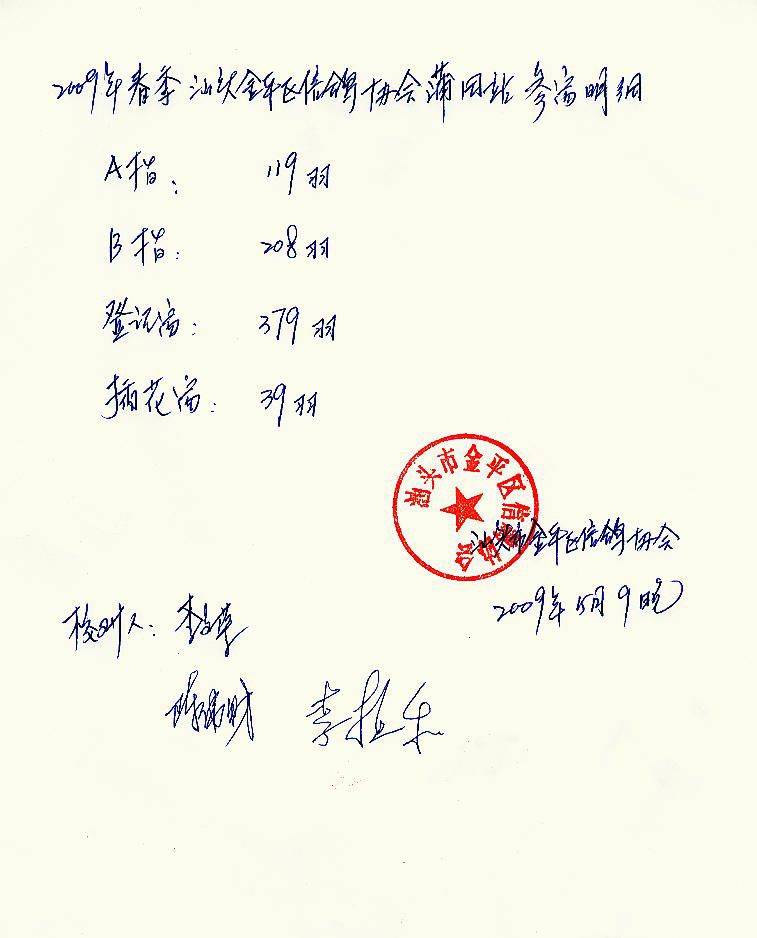 2009年春季汕头金平区信鸽协会蒲田站参赛明细
A指: 119羽
B指: 208羽
登记赛: 379羽
插花赛: 39羽
汕头市金平区信鸽协会
汕头市金平区信鸽协会
2009年5月9晚
校对人: 李
李植乐